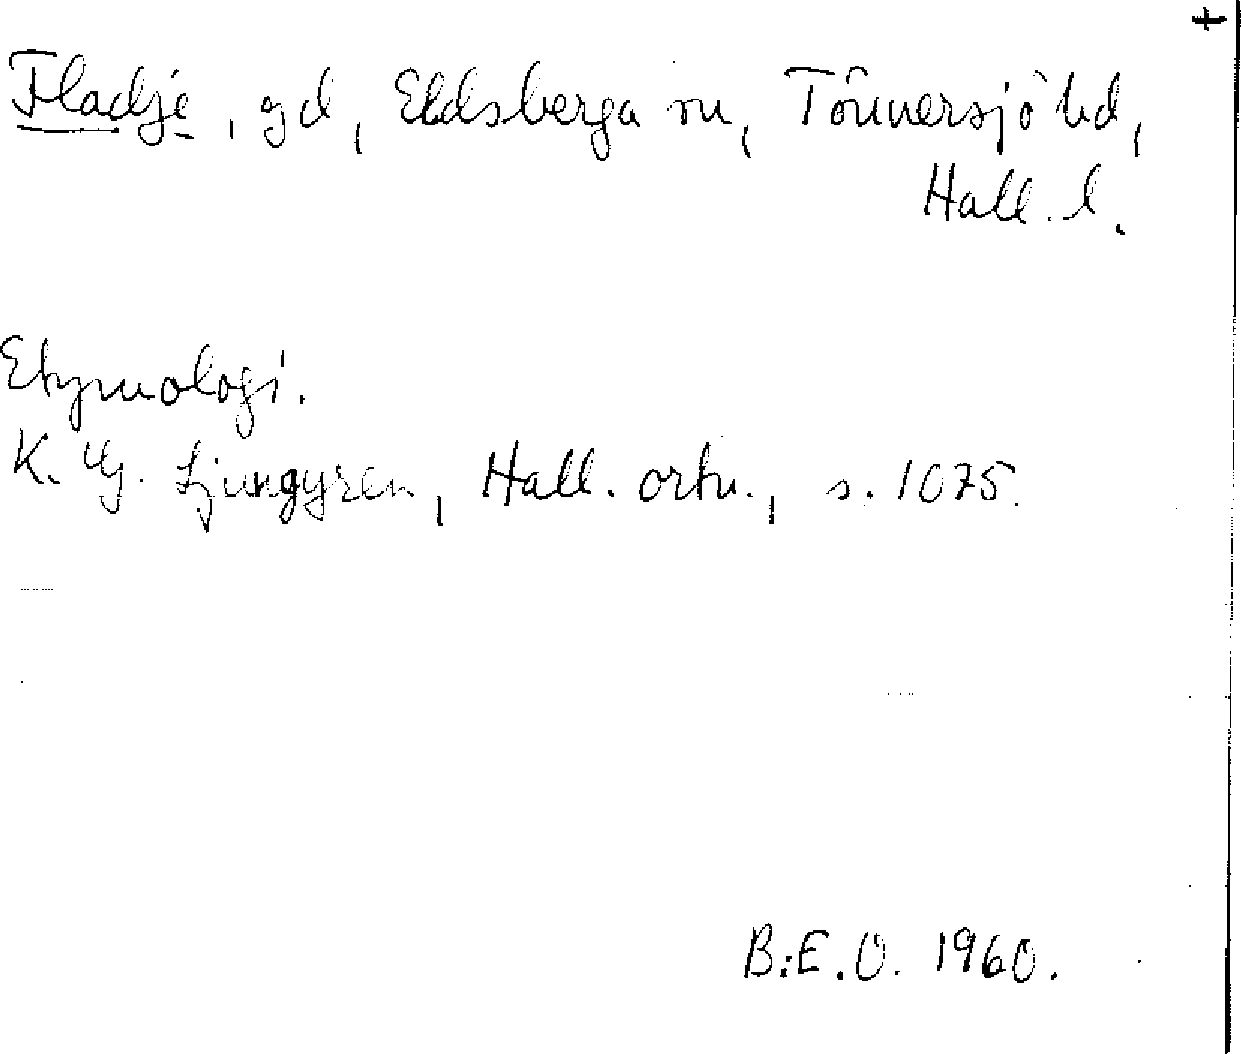 +
Fladje, gd, Eldsberga sn, Tönnersjö hd,
Hall. l.
Etymologi.
K. G. Ljunggren, Hall. ortn., s. 1075.
B.E.O. 1960.